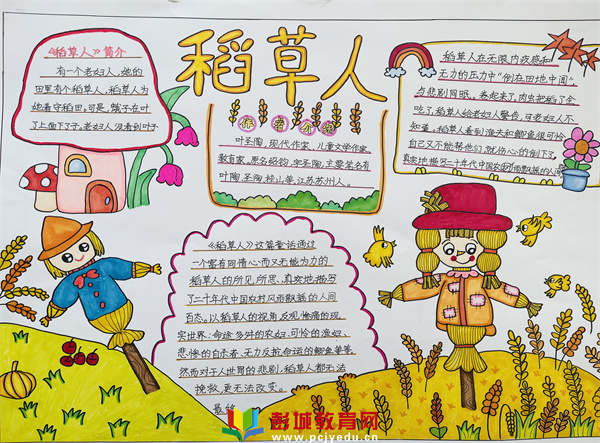 稻草人
《稻草人》简介
有一个老妇人，她的
田里有个稻草人，稻草人为
她看守稻田。可是，蛾子在叶
了上面下了子，老妇人没看到叶子
作者介绍
叶圣陶，现代作家、儿童文学作家、
教育家，原名绍钧，字圣陶，主要笔名有
叶陶、圣陶、桂山等，江苏苏州人。
稻草人在无限内疚感和
无力的压力中“倒在田地中间”。
吃了，稻草人给老妇人警告，可老妇人不
知道。稻草人看到渔夫和鲫鱼很可怜
自己又不能帮他们，就伤心的倒下了。
真实地描写二十年代中国农村风雨飘摇的人间
《稻草人》这篇童话通过
一个富有同情心而又无能为力的
稻草人的所见、所思，真实地描写
了二十年代中国农村风雨飘摇的人间
百态。以稻草人的视角反观惨痛的现
实世界：命途多舛的农妇、可怜的渔妇、
悲惨的自杀者、无力反抗命运的鲫鱼等等，
然而对于人世间的悲剧，稻草人都无法
挽救，更无法改变。
彭城教育网
www.pcjyedu.cn